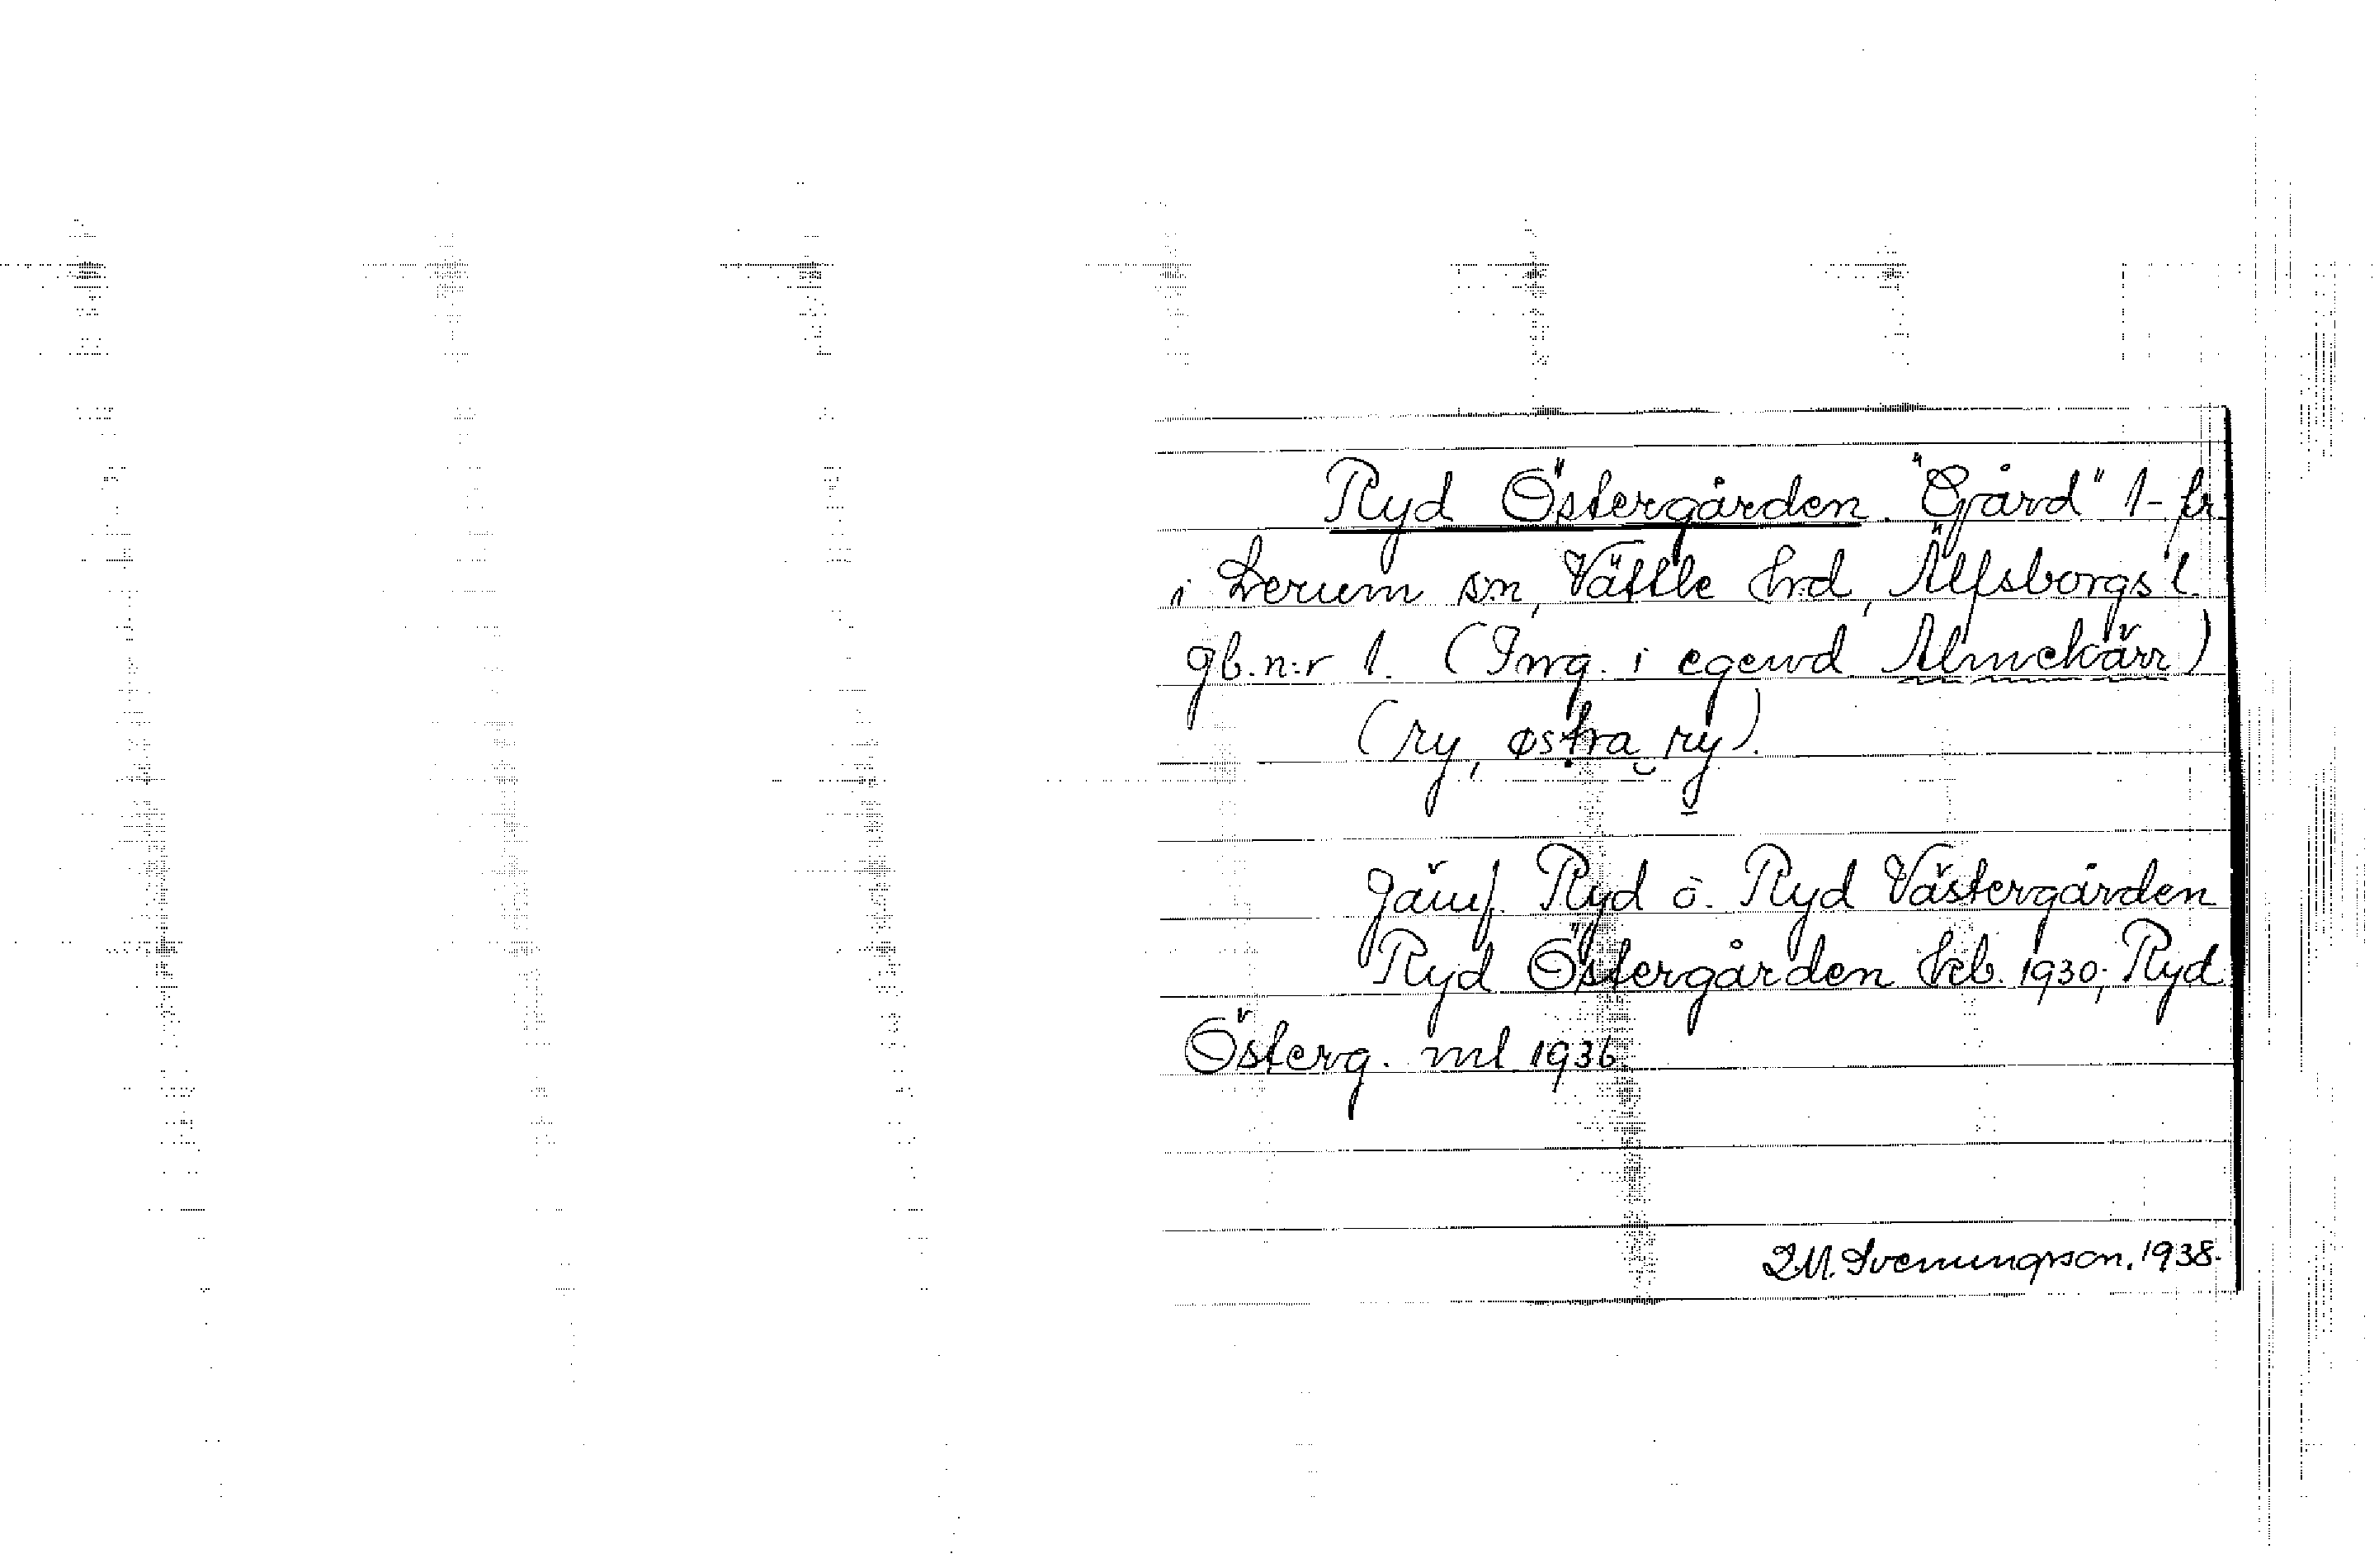 Ryd Östergården. "Gård" 1-fr
i Lerum sn, Vättle hrd, Älfsborgs l.
gb. n:r 1. (Ing. i egend Almekärr)
(ry, østra ry).
Jämf. Ryd o. Ryd Västergården
Ryd Östergården kb. 1930; Ryd
Österg. ml 1936.
Svenungsson. 1938.